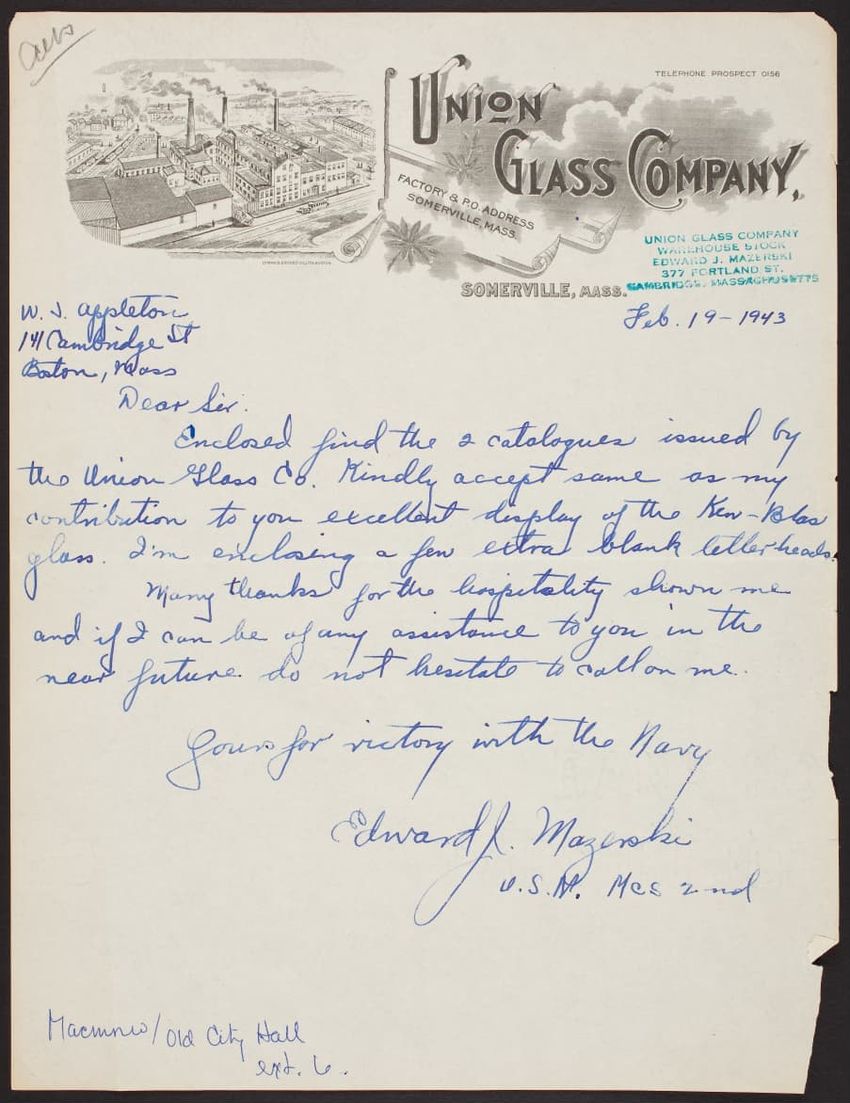 TELEPHONE PROSPECT 0156
UNION
GLASS COMPANY,
FACTORY & P.O. ADDRESS
SOMERVILLE, MASS.
SOMERVILLE, MASS.
UNION GLASS COMPANY
WAREHOUSE STOCK
EDWARD J. MAZERSKI
377 PORTLAND ST.
CAMBRIDGE, MASSACHUSETTS
Feb. 19-1943
W. S. Appleton
141 Cambridge St
Boston, Mass
Dear Sir.
Enclosed find the 2 catalogues issued by
the Union Glass Co. Kindly accept same as my
contribution to you excellent display of the Kew-Blas
glass. I'm enclosing a few extra blank letterheads.
Many thanks for the hospitality shown me
and if I can be of any assistance to you in the
near future do not hesitate to call on me.
Yours for victory with the Navy
Edward J. Mazerski
U.S.N. 2nd
Old City Hall
ext. 6.